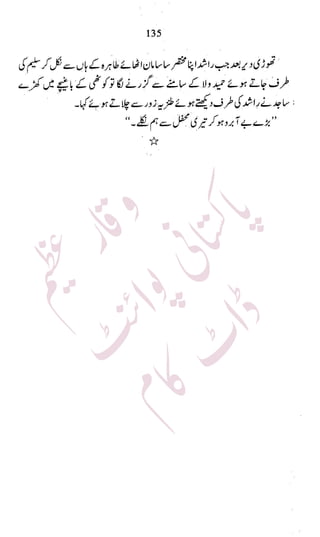 135
تھوڑی دیر بعد جب راشد اپنا مختصر سا سامان اٹھائے طاہرہ کے ہاں سے نکل کر سلیم کی
طرف جاتے ہوئے حمید ولا کے سامنے سے گزرنے لگا تو کوٹھی کے باغیچے میں کھڑے
ساجد نے راشد کی طرف دیکھتے ہوئے طنزیہ زور سے چلاتے ہوئے کہا۔
’’بڑے بے آبرو ہو کر تیری محفل سے ہم نکلے۔‘‘
☆
وقار عظیم
پاکستانی پوائنٹ
ڈاٹ کام